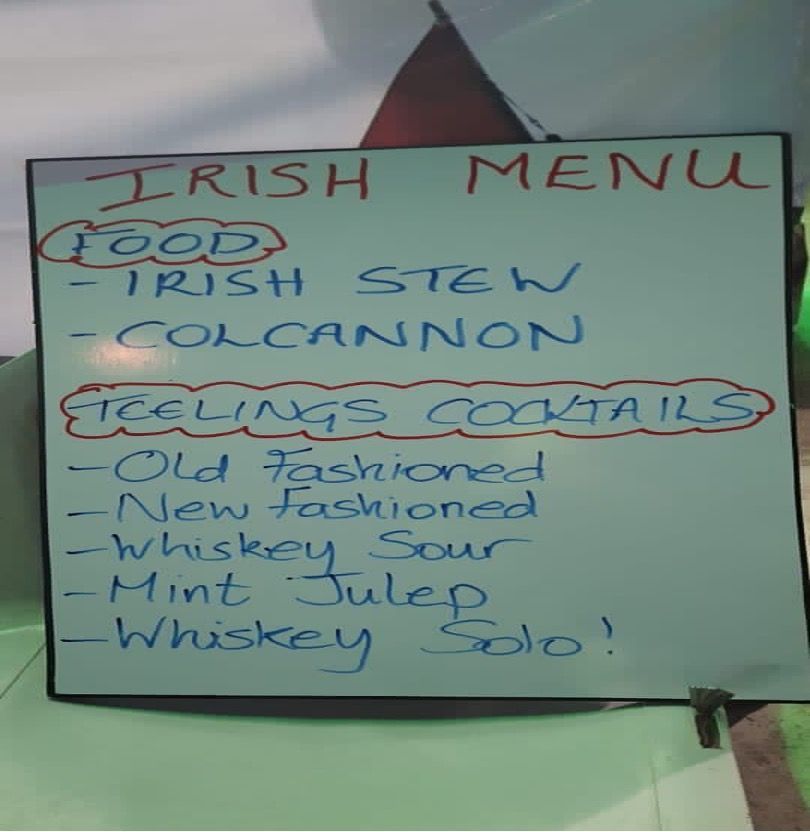 IRISH MENU
FOOD
- IRISH STEW
- COLCANNON
TEELINGS COCKTAILS
- Old Fashioned
- New Fashioned
- Whiskey Sour
- Mint Julep
- Whiskey Solo!